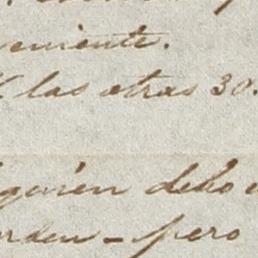 veniente.
las otras 30.
quien debo
orden - pero